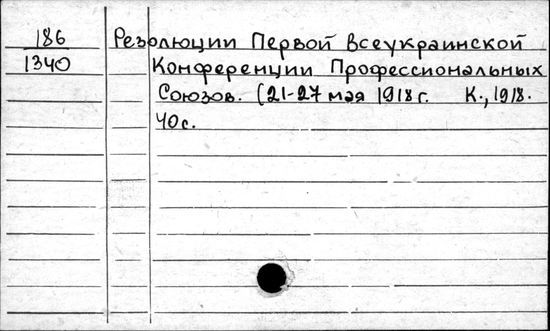 186 Резолюции Первой Всеукраинской
1340 Конференции Профессиональных
Союзов. (21-27 мая 1918 г. К., 1918.
40 с.